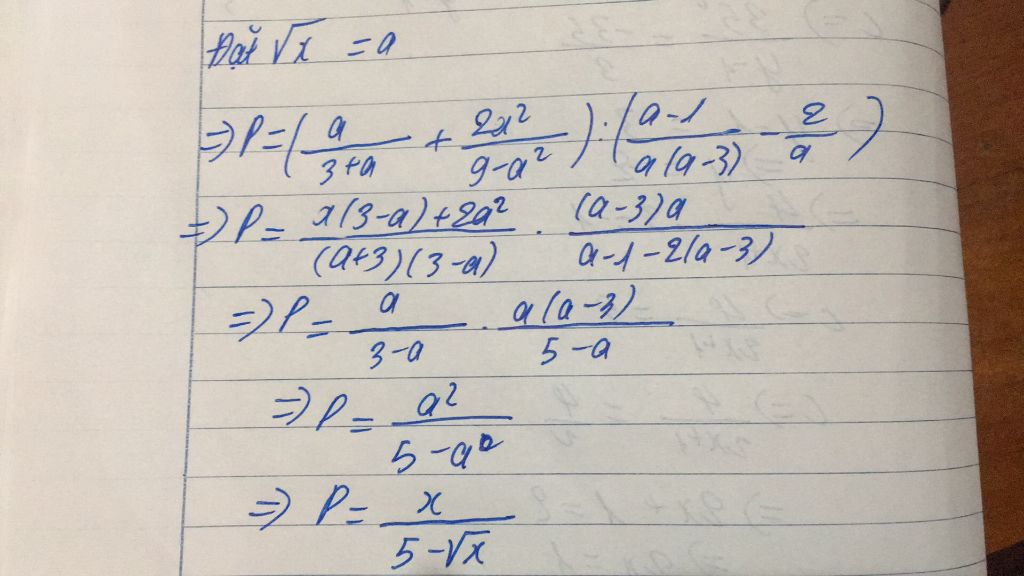 Đặt √x = a
=> P = (a/(3+a) + 2x²/(9-a²)) . ((a-1)/(a(a-3)) - 2/a)
=> P = (x(3-a)+2a²)/((a+3)(3-a)) . ((a-3)a)/(a-1-2(a-3))
=> P = a/(3-a) . a(a-3)/(5-a)
=> P = a²/(5-a²)
=> P = x/(5-√x)